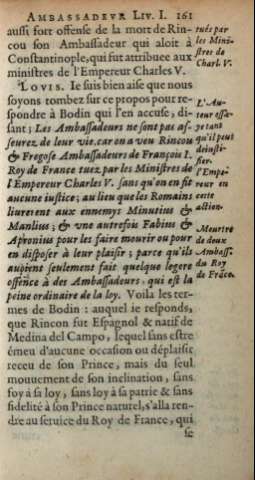 AMBASSADEVR LIV. I. 161
aussi fort offensé de la mort de Rin-
cou son Ambassadeur qui aloit à
Constantinople, qui fut attribuee aux
ministres de l'Empereur Charles V.
tués par
les Mini-
stres de
Charl. V.
LOVIS. Ie suis bien aise que nous
soyons tombez sur ce propos pour res-
pondre à Bodin qui l'en accuse, di-
sant ; Les Ambassadeurs ne sont pas as-
seurez de leur vie, car on a veu Rincou
& Fregose Ambassadeurs de François I.
Roy de France tuez par les Ministres de
l'Empereur Charles V. sans qu'on en fit
aucune iustice ; au lieu que les Romains
liurerent aux ennemys Minutius &
Manlius ; & vne autrefois Fabius &
Apronius pour les faire mourir ou pour
en disposer à leur plaisir ; parce qu'ils
auoient seulement fait quelque legere
offence à des Ambassadeurs, qui est la
peine ordinaire de la loy. Voila les ter-
mes de Bodin : auquel ie responds,
que Rincon fut Espagnol & natif de
Medina del Campo, lequel sans estre
émeu d'aucune occasion ou déplaisir
receu de son Prince, mais du seul
mouuement de son inclination, sans
foy à sa loy, sans loy à sa patrie & sans
fidelité à son Prince naturel, s'alla ren-
dre au seruice du Roy de France, qui
se
L'Au-
teur essa-
ye tant
qu'il peut
de iusti-
fier
l'Empe-
reur en
cette
action.
Meurtre
de deux
Ambass.
du Roy
de Frãce.